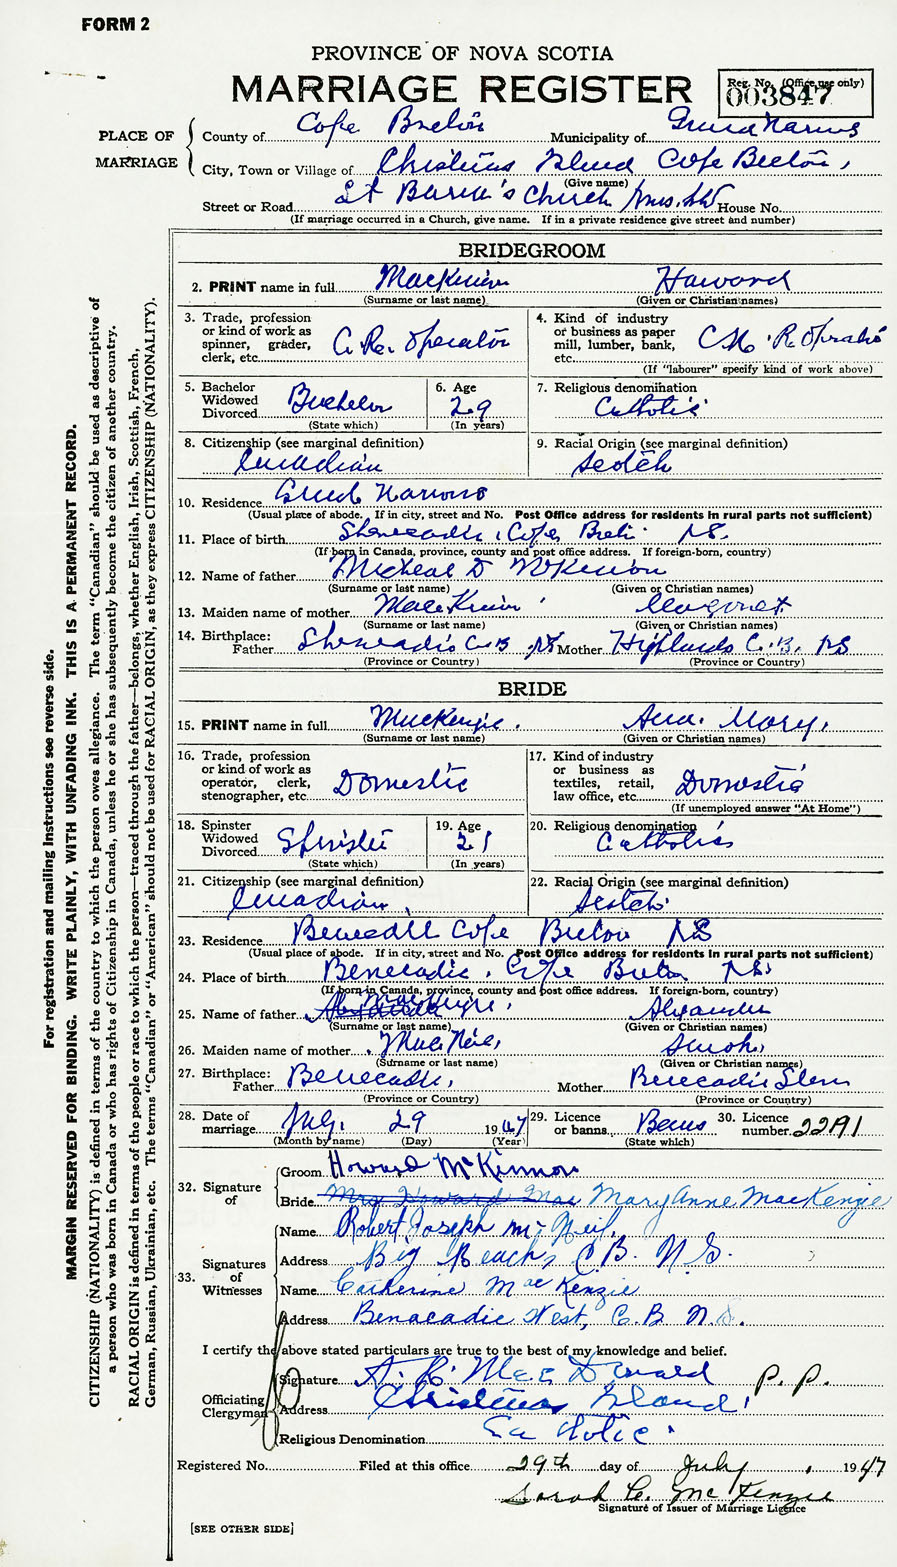 FORM 2
PROVINCE OF NOVA SCOTIA
MARRIAGE REGISTER
Reg. No. (Office use only)
003847
PLACE OF MARRIAGE
County of Cape Breton Municipality of Grand Narrows
City, Town or Village of Christmas Island Cape Breton,
(Give name)
Street or Road St Church House No.
(If marriage occurred in a Church, give name. If in a private residence give street and number)
BRIDEGROOM
2. PRINT name in full MacKinnon Howard
(Surname or last name) (Given or Christian names)
3. Trade, profession or kind of work as spinner, grader, clerk, etc. Operator
4. Kind of industry or business as paper mill, lumber, bank, etc. C N. R.
(If "labourer" specify kind of work above)
5. Bachelor Widowed Divorced Bachelor
(State which)
6. Age 29
(In years)
7. Religious denomination Catholic
8. Citizenship (see marginal definition) Canadian
9. Racial Origin (see marginal definition) Scotch
10. Residence Grand Narrows
(Usual place of abode. If in city, street and No. Post Office address for residents in rural parts not sufficient)
11. Place of birth Shenacadie, Cape Breton NS.
(If born in Canada, province, county and post office address. If foreign-born, country)
12. Name of father Micheal D McKinnon
(Surname or last name) (Given or Christian names)
13. Maiden name of mother MacKinnon Margaret
(Surname or last name) (Given or Christian names)
14. Birthplace: Father Shenacadie C.B NS Mother Highlands C.B. NS
(Province or Country) (Province or Country)
BRIDE
15. PRINT name in full MacKenzie. Ann. Mary,
(Surname or last name) (Given or Christian names)
16. Trade, profession or kind of work as operator, clerk, stenographer, etc. Domestic
17. Kind of industry or business as textiles, retail, law office, etc. Domestic
(If unemployed answer "At Home")
18. Spinster Widowed Divorced Spinster
(State which)
19. Age 21
(In years)
20. Religious denomination Catholic
21. Citizenship (see marginal definition) Canadian
22. Racial Origin (see marginal definition) Scotch
23. Residence Cape Breton NS
(Usual place of abode. If in city, street and No. Post Office address for residents in rural parts not sufficient)
24. Place of birth Benecadie, Cape Breton NS.
(If born in Canada, province, county and post office address. If foreign-born, country)
25. Name of father MacKenzie, Alexander
(Surname or last name) (Given or Christian names)
26. Maiden name of mother MacNeil, Sarah,
(Surname or last name) (Given or Christian names)
27. Birthplace: Father Benecadie, Mother Benecadie
(Province or Country) (Province or Country)
28. Date of marriage July. 29 1947
(Month by name) (Day) (Year)
29. Licence or banns Banns
(State which)
30. Licence number 22191
32. Signature of
Groom Howard McKinnon
Bride Mrs Howard Mac Mary Anne MacKenzie
33. Signatures of Witnesses
Name Robert Joseph McNeil,
Address Big Beach, C.B. N.S.
Name Catherine MacKenzie
Address Benacadie West, C.B N.S.
I certify the above stated particulars are true to the best of my knowledge and belief.
Officiating Clergyman
Signature A. R. MacDonald P. P.
Address Christmas Island,
Religious Denomination Catholic
Registered No. Filed at this office 29th day of July, 1947
Sarah C. McKenzie
Signature of Issuer of Marriage Licence
[SEE OTHER SIDE]
For registration and mailing instructions see reverse side.
MARGIN RESERVED FOR BINDING. WRITE PLAINLY, WITH UNFADING INK. THIS IS A PERMANENT RECORD.
CITIZENSHIP (NATIONALITY) is defined in terms of the country to which the person owes allegiance. The term "Canadian" should be used as descriptive of
a person who was born in Canada or who has rights of Citizenship in Canada, unless he or she has subsequently become the citizen of another country.
RACIAL ORIGIN is defined in terms of the people or race to which the person—traced through the father—belongs, whether English, Irish, Scottish, French,
German, Russian, Ukrainian, etc. The terms "Canadian" or "American" should not be used for RACIAL ORIGIN, as they express CITIZENSHIP (NATIONALITY).